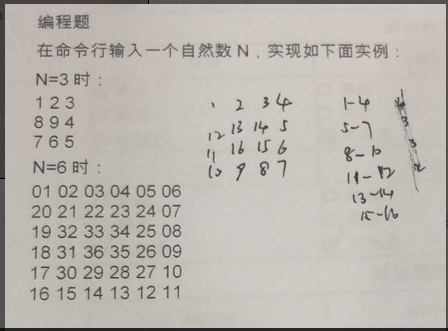 编程题
在命令行输入一个自然数 N，实现如下面实例：
N=3 时：
1 2 3
8 9 4
7 6 5
N=6 时：
01 02 03 04 05 06
20 21 22 23 24 07
19 32 33 34 25 08
18 31 36 35 26 09
17 30 29 28 27 10
16 15 14 13 12 11
1 2 3 4
12 13 14 5
11 16 15 6
10 9 8 7
1-4
5-7
8-10
11-12
13-14
15-16